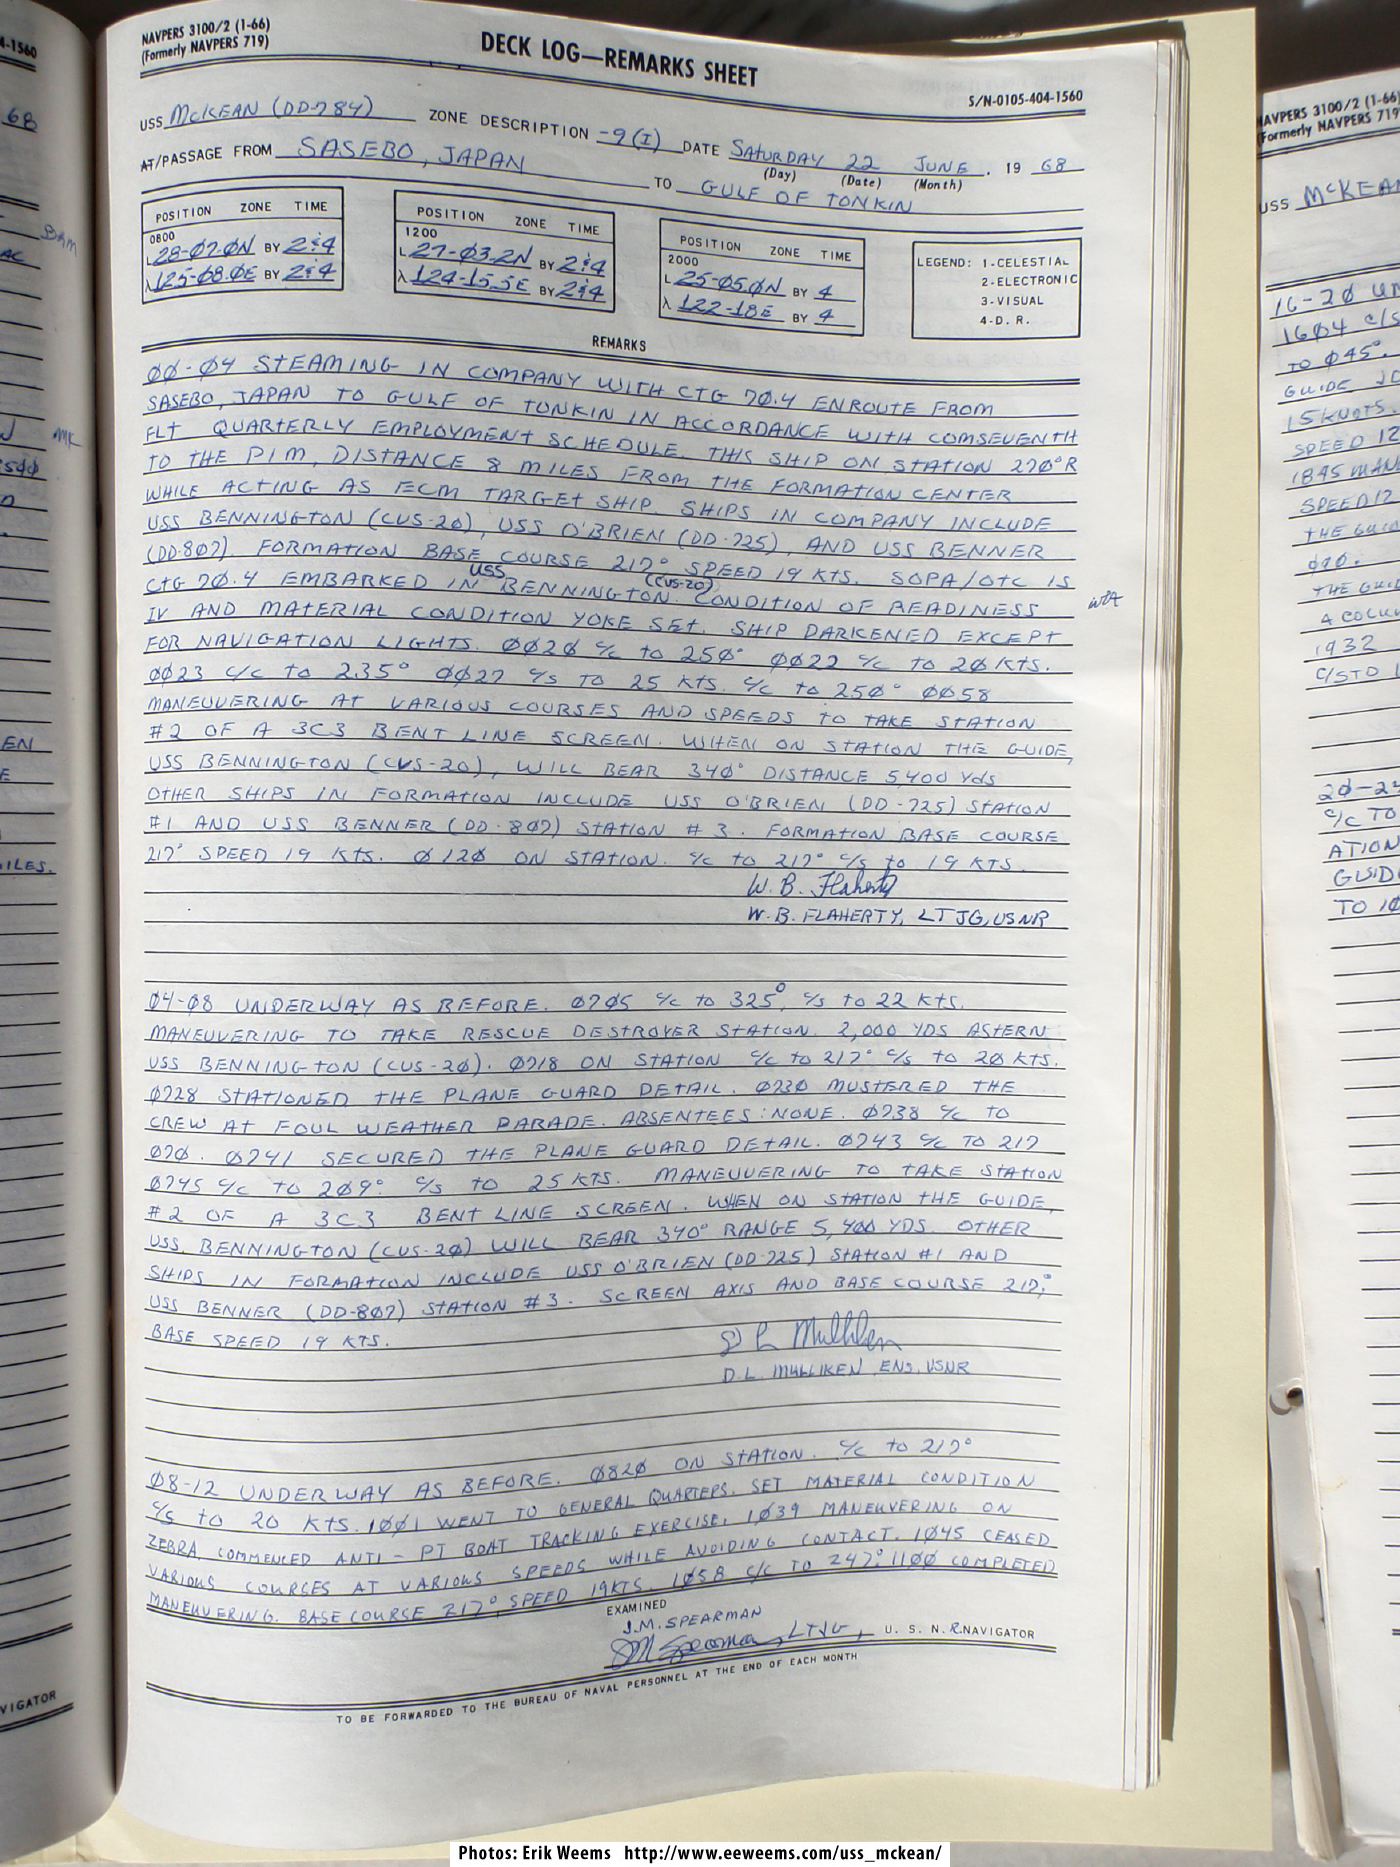 NAVPERS 3100/2 (1-66)
(Formerly NAVPERS 719)
DECK LOG—REMARKS SHEET
S/N-0105-404-1560
USS McKEAN (DD-784) ZONE DESCRIPTION -9(I) DATE SATURDAY 22 JUNE, 19 68
(Day) (Date) (Month)
AT/PASSAGE FROM SASEBO, JAPAN TO GULF OF TONKIN
POSITION ZONE TIME
0800
L 28-07.0N BY 2&4
λ 125-08.0E BY 2&4
POSITION ZONE TIME
1200
L 27-03.2N BY 2&4
λ 124-15.5E BY 2&4
POSITION ZONE TIME
2000
L 25-05.0N BY 4
λ 122-18E BY 4
LEGEND: 1-CELESTIAL
2-ELECTRONIC
3-VISUAL
4-D. R.
REMARKS
00-04 STEAMING IN COMPANY WITH CTG 70.4 ENROUTE FROM
SASEBO, JAPAN TO GULF OF TONKIN IN ACCORDANCE WITH COMSEVENTH
FLT QUARTERLY EMPLOYMENT SCHEDULE. THIS SHIP ON STATION 270°R
TO THE PIM, DISTANCE 8 MILES FROM THE FORMATION CENTER
WHILE ACTING AS ECM TARGET SHIP. SHIPS IN COMPANY INCLUDE
USS BENNINGTON (CVS-20), USS O'BRIEN (DD-725), AND USS BENNER
(DD-807). FORMATION BASE COURSE 217° SPEED 19 KTS. SOPA/OTC IS
CTG 70.4 EMBARKED IN USS BENNINGTON (CVS-20). CONDITION OF READINESS
IV AND MATERIAL CONDITION YOKE SET. SHIP DARKENED EXCEPT
FOR NAVIGATION LIGHTS. 0020 c/c to 250° 0022 c/c to 20 KTS.
0023 c/c to 235° 0027 c/s TO 25 KTS. c/c to 250° 0058
MANEUVERING AT VARIOUS COURSES AND SPEEDS TO TAKE STATION
#2 OF A 3C3 BENT LINE SCREEN. WHEN ON STATION THE GUIDE,
USS BENNINGTON (CVS-20), WILL BEAR 340° DISTANCE 5,400 Yds
OTHER SHIPS IN FORMATION INCLUDE USS O'BRIEN (DD-725) STATION
#1 AND USS BENNER (DD-807) STATION #3. FORMATION BASE COURSE
217° SPEED 19 KTS. 0120 ON STATION. c/c to 217° c/s to 19 KTS.
W. B. Flaherty
W. B. FLAHERTY, LTJG, USNR
04-08 UNDERWAY AS BEFORE. 0705 c/c to 325°, c/s to 22 KTS.
MANEUVERING TO TAKE RESCUE DESTROYER STATION. 2,000 YDS ASTERN
USS BENNINGTON (CVS-20). 0718 ON STATION c/c to 217° c/s to 20 KTS.
0728 STATIONED THE PLANE GUARD DETAIL. 0730 MUSTERED THE
CREW AT FOUL WEATHER PARADE. ABSENTEES: NONE. 0738 c/c TO
070. 0741 SECURED THE PLANE GUARD DETAIL. 0743 c/c TO 217
0745 c/c to 209° c/s to 25 KTS. MANEUVERING TO TAKE STATION
#2 OF A 3C3 BENT LINE SCREEN. WHEN ON STATION THE GUIDE,
USS. BENNINGTON (CVS-20) WILL BEAR 340° RANGE 5,400 YDS. OTHER
SHIPS IN FORMATION INCLUDE USS O'BRIEN (DD-725) STATION #1 AND
USS BENNER (DD-807) STATION #3. SCREEN AXIS AND BASE COURSE 217°,
BASE SPEED 19 KTS.
D L Mulliken
D.L. MULLIKEN, ENS, USNR
08-12 UNDERWAY AS BEFORE. 0820 ON STATION. c/c to 217°
c/s to 20 KTS. 1001 WENT TO GENERAL QUARTERS. SET MATERIAL CONDITION
ZEBRA, COMMENCED ANTI-PT BOAT TRACKING EXERCISE. 1039 MANEUVERING ON
VARIOUS COURSES AT VARIOUS SPEEDS WHILE AVOIDING CONTACT. 1045 CEASED
MANEUVERING. BASE COURSE 217°, SPEED 19KTS. 1058 c/c TO 247°. 1100 COMPLETED
EXAMINED
J.M. SPEARMAN
JM Spearman, LTJG, U. S. N. R. NAVIGATOR
TO BE FORWARDED TO THE BUREAU OF NAVAL PERSONNEL AT THE END OF EACH MONTH
4-1560
68
BAM
AC
MK
EN
E
ILES.
VIGATOR
NAVPERS 3100/2 (1-66)
Formerly NAVPERS 719
USS McKEAN
16-20 UN
1604 c/s
TO 045°.
GUIDE
15 KNOTS
SPEED 12
1845 MAN
SPEED 12
THE GUID
070.
THE GUID
A COLU
1932
C/S TO 1
20-24
c/c TO
ATION
GUIDE
TO 10
Photos: Erik Weems http://www.eeweems.com/uss_mckean/